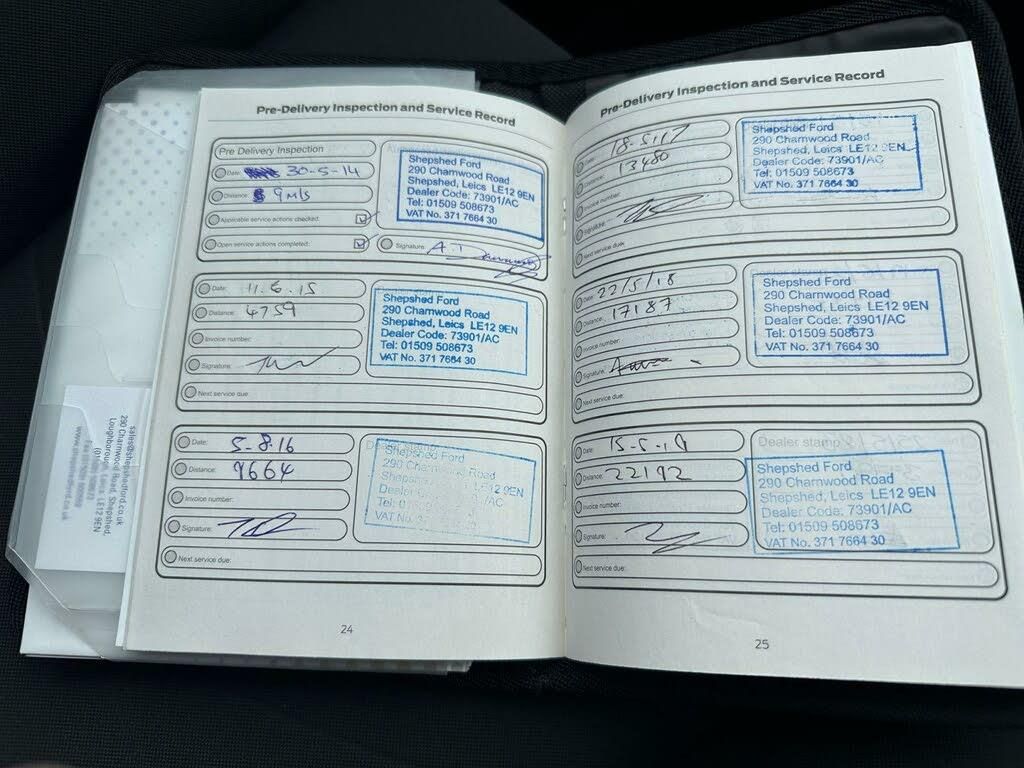 Pre-Delivery Inspection and Service Record
Pre Delivery Inspection
Date: 30-5-14
Distance: 9 M/S
Applicable service actions checked:
Open service actions completed:
Signature:
Shepshed Ford
290 Charnwood Road
Shepshed, Leics LE12 9EN
Dealer Code: 73901/AC
Tel: 01509 508673
VAT No. 371 7664 30
Date: 11.6.15
Distance: 4759
Invoice number:
Signature:
Next service due:
Shepshed Ford
290 Charnwood Road
Shepshed, Leics LE12 9EN
Dealer Code: 73901/AC
Tel: 01509 508673
VAT No. 371 7664 30
Date: 5-8-16
Distance: 9664
Invoice number:
Signature:
Next service due:
Dealer stamp
Shepshed Ford
290 Charnwood Road
LE12 9EN
Dealer
/AC
Tel:
VAT No.
24
Pre-Delivery Inspection and Service Record
Date: 18-5-17
Distance: 13480
Invoice number:
Signature:
Next service due:
Shepshed Ford
290 Charnwood Road
Shepshed, Leics LE12 9EN
Dealer Code: 73901/AC
Tel: 01509 508673
VAT No. 371 7664 30
Date: 22/5/18
Distance: 17187
Invoice number:
Signature:
Next service due:
Shepshed Ford
290 Charnwood Road
Shepshed, Leics LE12 9EN
Dealer Code: 73901/AC
Tel: 01509 508673
VAT No. 371 7664 30
Date: 15-5-19
Distance: 22192
Invoice number:
Signature:
Next service due:
Dealer stamp
Shepshed Ford
290 Charnwood Road
Shepshed, Leics LE12 9EN
Dealer Code: 73901/AC
Tel: 01509 508673
VAT No. 371 7664 30
25
sales@shepshedford.co.uk
290 Charnwood Road, Shepshed,
Loughborough, Leics. LE12 9EN